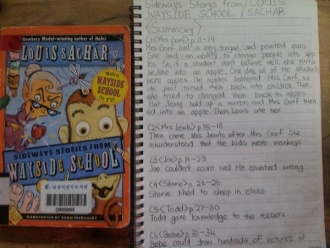 Newbery Medal-winning author of Holes
LOUIS SACHAR
WAYSIDE SCHOOL
SIDEWAYS STORIES FROM
WAYSIDE SCHOOL
Sideways Storys from/LOUIS
WAYSIDE SCHOOL / SACHAR
(Summary)
(1<Mrs Gorf> p11-14
Mrs Gorf had a long tongue and pointed ears.
She had an ability to change people into app
les. So, if a student don't behave well, she turns
he/she into an apple. One day, all of the student
were apples. The apples
part turned them back into children. Then,
she tried to change them back to apples.
But Jenny held up a mirror and Mrs Gorf turn
ed into an apple. Then Louis ate her.
(2<Mrs Jewls> p15-18
Then came Mrs Jewls after Mrs Gorf. She
misunderstood that the kids were monkeys
(3<Joe> p19-23
Joe couldn't count well. He counted wrong.
24-26
liked to sleep in class.
(5<Todd> p27-30
Todd gave knowledge to the robbers
31-34
Bebe could draw hundreds of pictures of